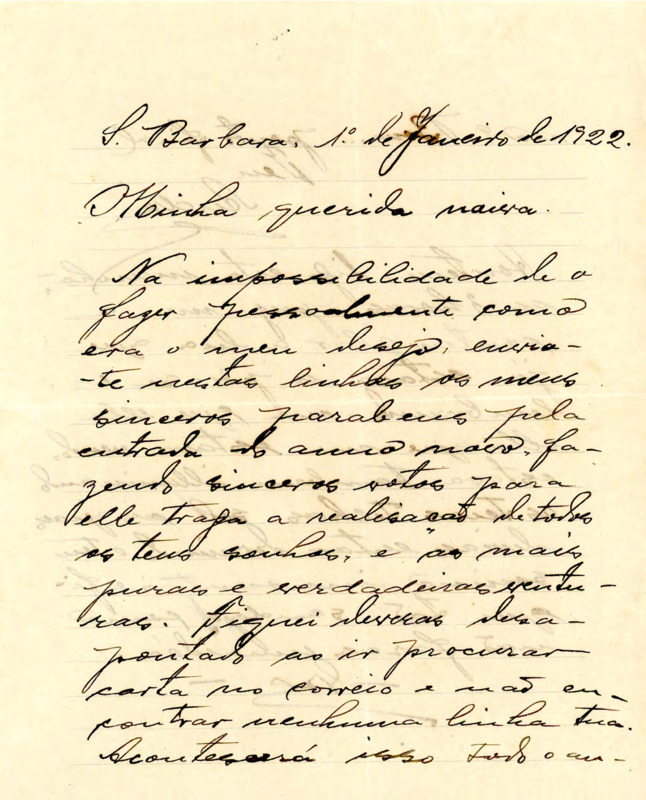 S. Barbara, 1º de Janeiro de 1922.
Minha querida noiva.
Na impossibilidade de o
fazer pessoalmente como
era o meu desejo, envio-
-te nestas linhas os meus
sinceros parabens pela
entrada do anno novo, fa-
zendo sinceros votos para
elle traga a realisacaõ de todos
os teus sonhos, e as mais
puras e verdadeiras ventu-
ras. Fiquei deveras desa-
pontado ao ir procurar
carta no correio e naõ en-
contrar nenhuma linha tua.
Acontescerá isso todo o an-